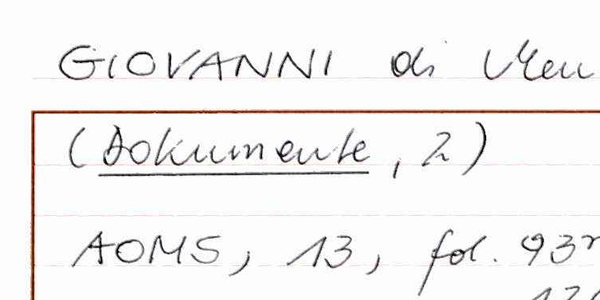 GIOVANNI di
(Dokumente, 2)
AOMS, 13, fol. 93r